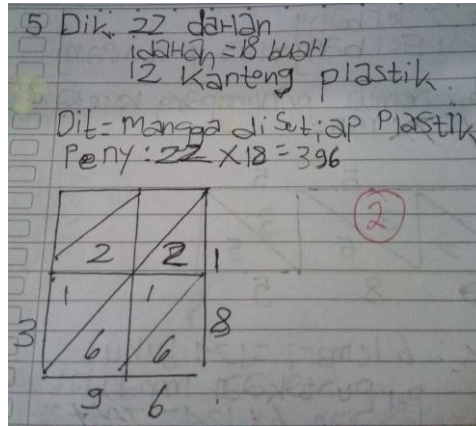 5 Dik. 22 dahan
1 dahan = 18 buah
12 Kantong plastik
Dit = Mangga di Setiap Plastik
Peny : 22 X 18 = 396
2
2 2 1
1 1
3 6 6 8
9 6